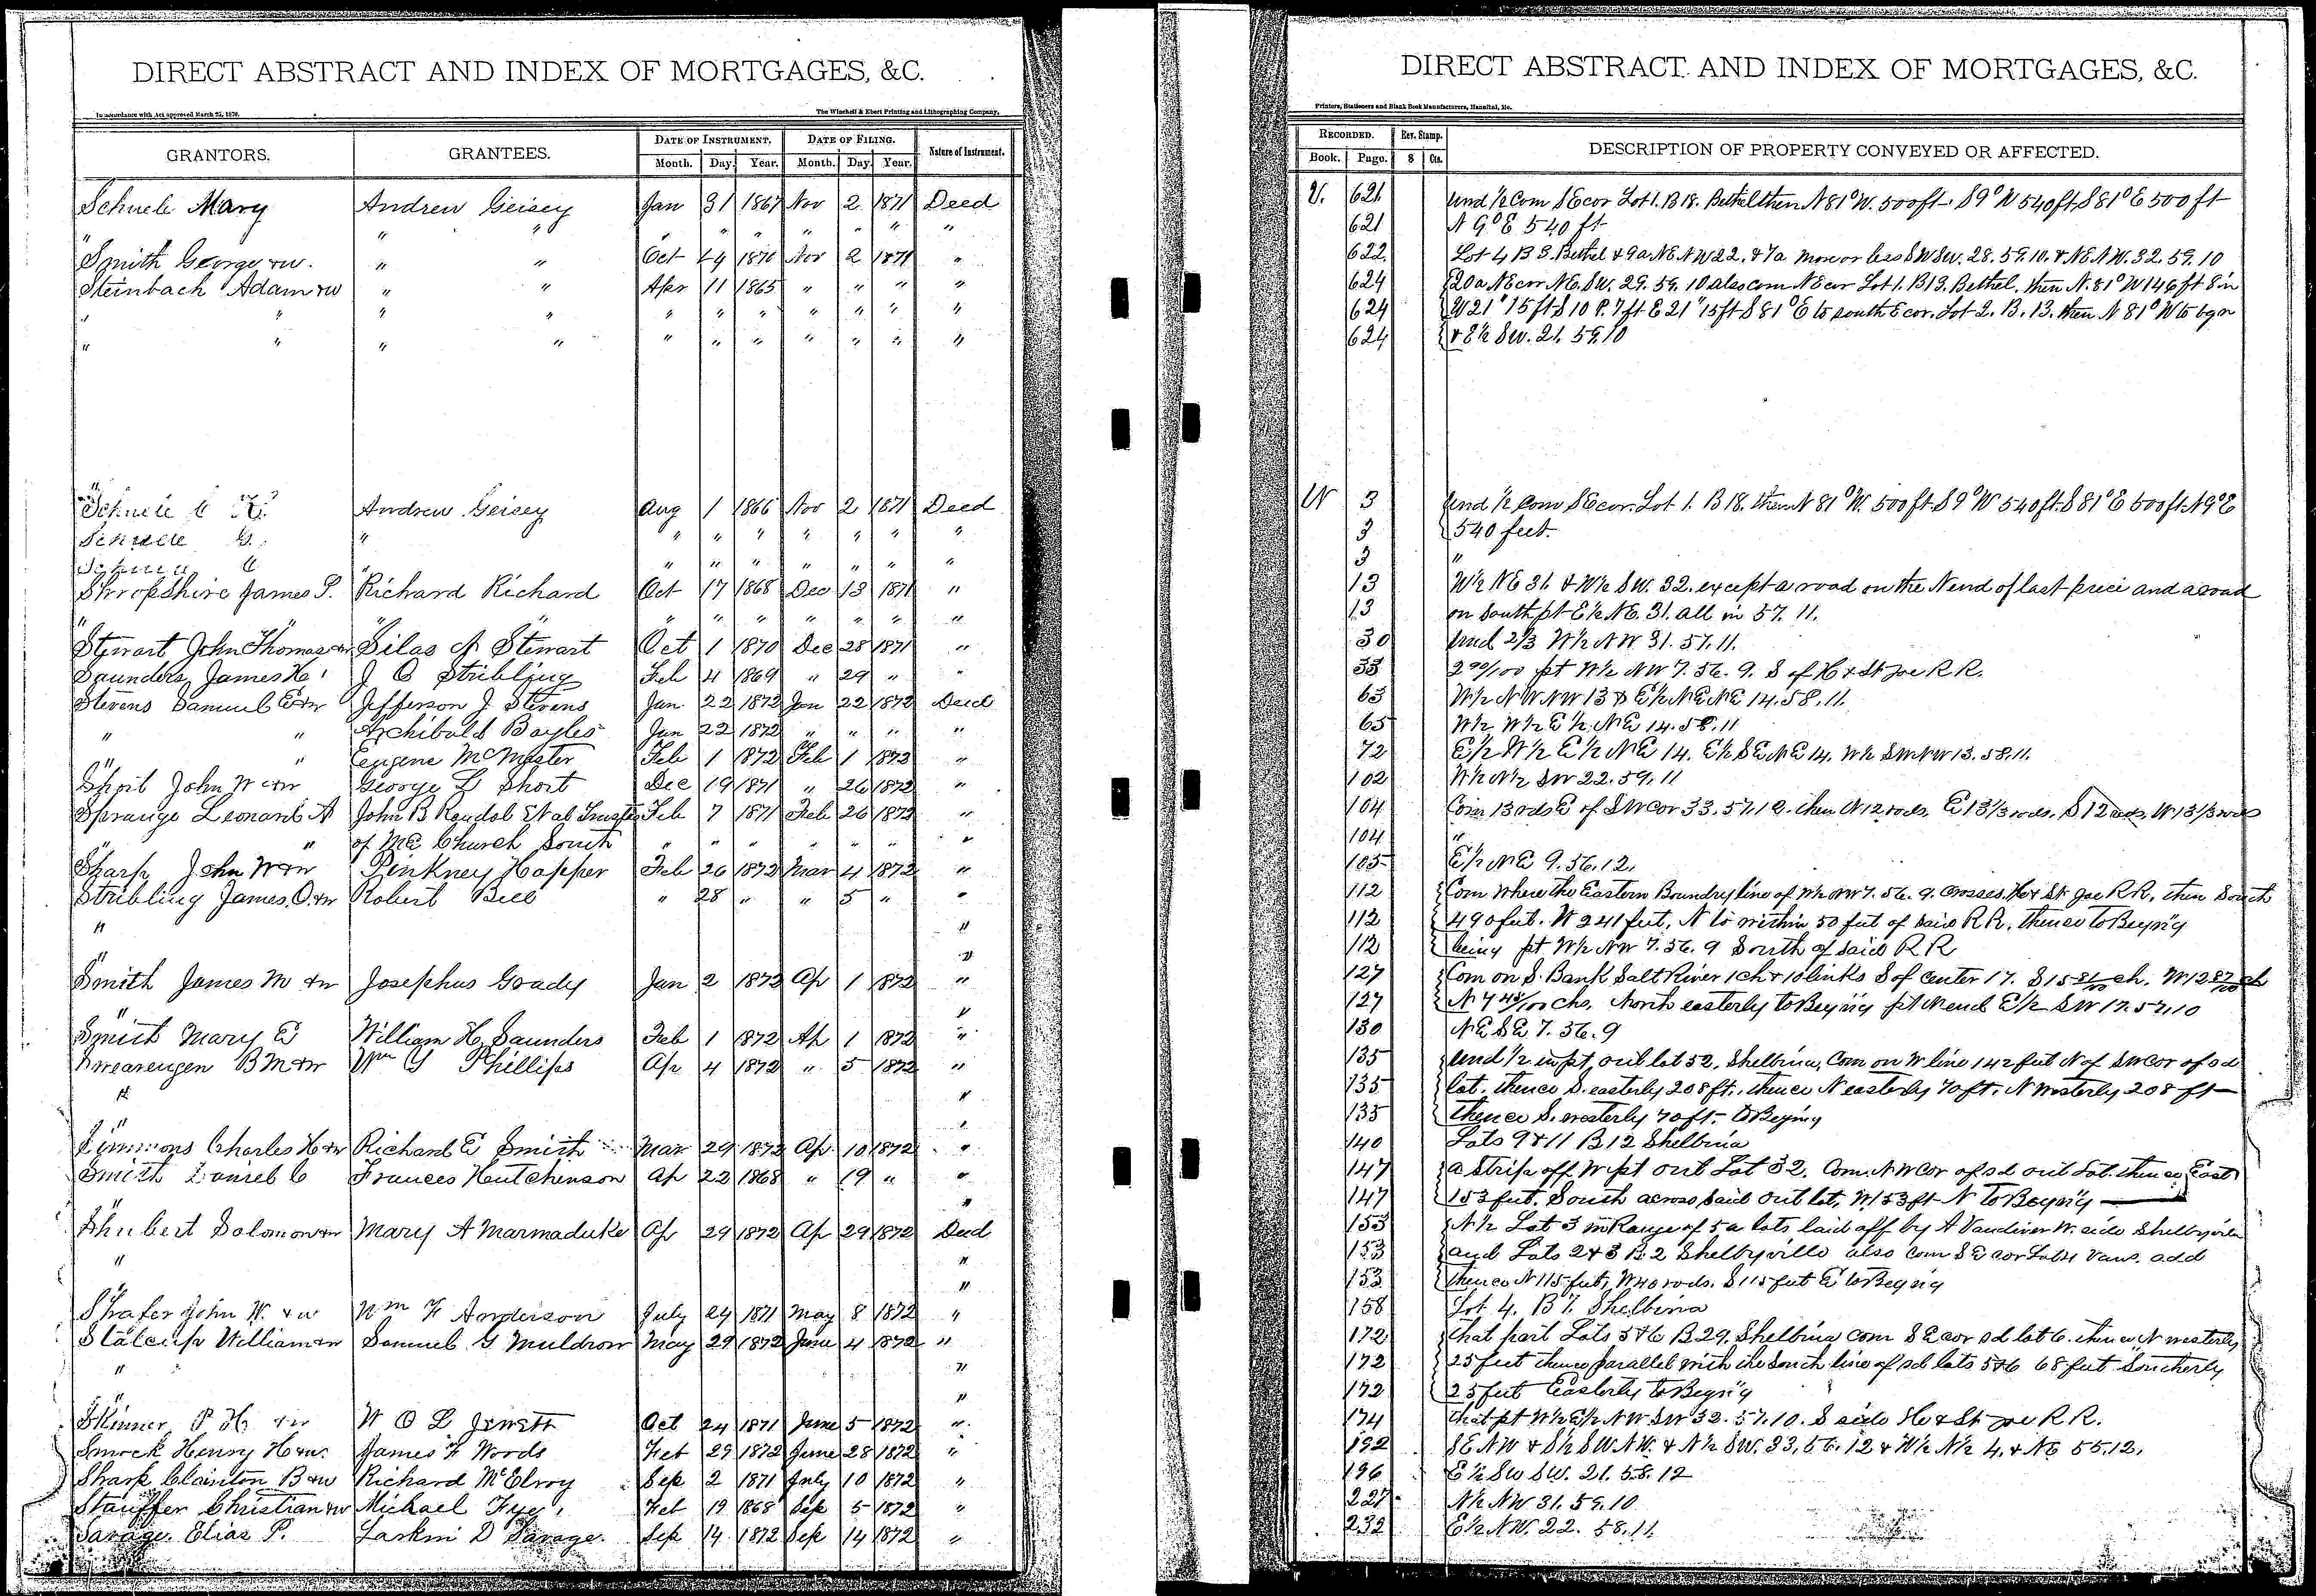 DIRECT ABSTRACT AND INDEX OF MORTGAGES, &C.
In accordance with Act approved March 25, 1870.
The Winchell & Ebert Printing and Lithographing Company,
GRANTORS. GRANTEES. DATE OF INSTRUMENT. DATE OF FILING. Nature of Instrument.
Month. Day. Year. Month. Day. Year.
Schuele Mary Andrew Geisey Jan 31 1867 Nov 2 1871 Deed
" " " " " " " " " "
Smith George & w. " " Oct 1870 Nov 2 1871 "
Steinbach Adam & w " " Apr 11 1865 " " " "
" " " " " " " " " " "
" " " " " " " " " " "
Andrew Geisey Aug 1 1866 Nov 2 1871 Deed
" " " " " " " "
" " " " " " " "
Shropshire James P. Richard Richard Oct 17 1868 Dec 13 1871 "
" " " " " " " " "
Stewart John Thomas Silas A Stewart Oct 1 1870 Dec 28 1871 "
Saunders James H. J O Stribling Feb 4 1869 " 29 " "
Stevens Samuel E & w Jefferson J Stevens Jan 22 1872 Jan 22 1872 Deed
" " Archibald Bayles Jan 22 1872 " " " "
" " Eugene McMaster Feb 1 1872 Feb 1 1872 "
Short John W & w George L Short Dec 19 1871 " 26 1872 "
Sprauge Leonard A John B Randol Et al Trustees Feb 7 1871 Feb 26 1872 "
" " of ME Church South " " " " " " "
Sharp John W & w Pinkney Hopper Feb 26 1872 Mar 4 1872 "
Stribling James O. & w Robert Bell " 28 " " 5 " "
" "
" "
Smith James M & w Josephus Grady Jan 2 1872 Ap 1 1872 "
" "
Smith Mary E William H. Saunders Feb 1 1872 Ap 1 1872 "
Swearengen B M & w Wm Y Phillips Ap 4 1872 " 5 1872 "
" "
" "
Simmons Charles H & w Richard E Smith Mar 29 1872 Ap 10 1872 "
Smith Daniel C Frances Hutchinson Ap 22 1868 " 19 " "
" "
Shubert Solomon & w Mary A Marmaduke Ap 29 1872 Ap 29 1872 Deed
" "
"
Shafer John W. & w Wm F Anderson July 24 1871 May 8 1872 "
Stalcup William & w Samuel G Muldrow May 29 1872 June 4 1872 "
" "
" "
Skinner P H. & w W O L Jewett Oct 24 1871 June 5 1872 "
Smock Henry H & w. James F Woods Feb 29 1872 June 28 1872 "
Sharp Clainton B & w Richard McElroy Sep 2 1871 July 10 1872 "
Stauffer Christian & w Michael Fye Feb 19 1868 Sep 5 1872 "
Savage Elias P. Larkin D Savage. Sep 14 1872 Sep 14 1872 "
DIRECT ABSTRACT AND INDEX OF MORTGAGES, &C.
Printers, Stationers and Blank Book Manufacturers, Hannibal, Mo.
RECORDED. Rev. Stamp. DESCRIPTION OF PROPERTY CONVEYED OR AFFECTED.
Book. Page. $ Cts.
V. 621 und 1/2 Com S E cor Lot 1. B 18. Bethel then N 81° W. 500 ft. S 9° W 540 ft S 81° E 500 ft
621 N 9° E 540 ft
622 Lot 4 B 3 Bethel & 9a NE NW 22. & 7a more or less SW SW. 28. 59. 10. & NE NW. 32. 59. 10
624 20a NE cor NE. SW. 29. 59. 10 also com NE cor Lot 1. B 13. Bethel, then N. 81° W 146 ft 8 in
624 W 21" 15 ft S 10 P. 7 ft E 21" 15 ft S 81° E to south E cor. Lot 2. B. 13. then N 81° W to bgn
624 & E 1/2 SW. 21. 59. 10
W 3 und 1/2 Com S E cor. Lot 1. B 18. then N 81° W. 500 ft S 9° W 540 ft. S 81° E 500 ft N 9° E
3 540 feet.
3 "
13 W 1/2 NE 31. & W 1/2 SW. 32. except a road on the N end of last piece and a road
13 on South pt E 1/2 NE. 31. all in 57. 11.
30 und 2/3 W 1/2 NW. 31. 57. 11.
33 2 90/100 pt W 1/2 NW 7. 56. 9. S of H & St Joe R R.
63 W 1/2 NW NW 13 & E 1/2 NE NE 14. 58. 11.
65 W 1/2 W 1/2 E 1/2 NE 14. 58. 11
72 E 1/2 W 1/2 E 1/2 NE 14. E 1/2 SE NE 14. W 1/2 SW NW 13. 58. 11.
102 W 1/2 N 1/2 SW 22. 59. 11
104 Com 13 rods E of SW Cor 33. 57. 12. then N 12 rods, E 13 1/3 rods, S 12 rods, W 13 1/3 rods
104 "
105 E 1/2 NE 9. 56. 12.
112 Com Where the Eastern Boundry line of W 1/2 NW 7. 56. 9. Crosses H & St Joe R R, then South
112 490 feet. W 241 feet, N to within 50 feet of said R R. thence to Beging
112 being pt W 1/2 NW 7. 56. 9 South of said R R
127 Com on S. Bank Salt River 1 ch & 10 links S of center 17. S 15 81/100 ch. W 12 87/100 ch
127 N 7 48/100 chs. North easterly to Beging pt N end E 1/2 SW 17. 57. 10
130 NE SE 7. 56. 9
135 und 1/2 in pt out lot 52, Shelbina, Com on W line 142 feet N of SW Cor of sd
135 lot, thence S. easterly 208 ft., thence N easterly 70 ft. N Westerly 208 ft
135 thence S. westerly 70 ft. to Beging
140 Lots 9 & 11 B 12 Shelbina
147 a Strip off W pt out Lot 32. Com. N W Cor of sd out Lot. thence East
147 153 feet, South across said out lot, W 153 ft N To Beging
153 N 1/2 Lot 3 in Range of 5a lots laid off by A Vandiver W. side Shelbyville
153 and Lots 2 & 3 B. 2 Shelbyville also com S E cor Vans. add
153 thence N 115 feet, W 40 rods. S 115 feet E to Beging
158 Lot 4. B 7. Shelbina
172 that part Lots 5 & 6 B 29. Shelbina com S E cor sd lot 6. thence N westerly
172 25 feet thence parallel with the South line of sd lots 5 & 6 68 feet Southerly
172 25 feet Easterly to Beging
174 that pt W 1/2 E 1/2 NW SW 32. 57. 10. S side H & St Joe R R.
192 SE NW & S 1/2 SW NW. & N 1/2 SW. 33, 56. 12 & W 1/2 N 1/2 4. & NE 55. 12.
196 E 1/2 SW SW. 21. 58. 12
227 N 1/2 NW 31. 59. 10
232 E 1/2 NW. 22. 58. 11.